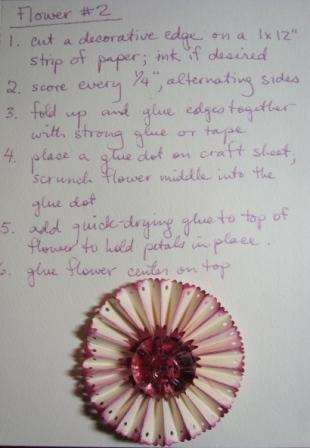 Flower #2
1. cut a decorative edge on a 1x12"
strip of paper; ink if desired
2. score every 1/4", alternating sides
3. fold up and glue edges together
with strong glue or tape
4. place a glue dot on craft sheet,
scrunch flower middle into the
glue dot
5. add quick-drying glue to top of
flower to hold petals in place.
6. glue flower center on top